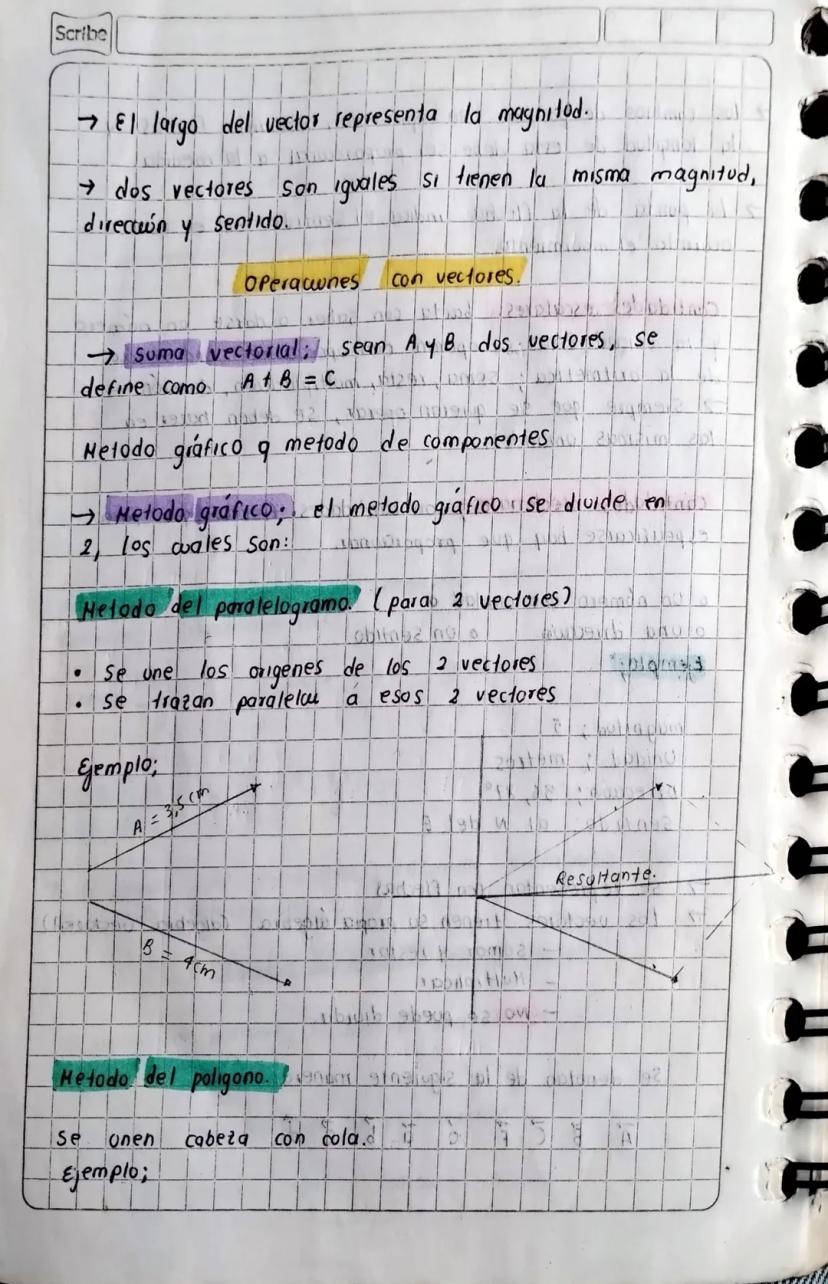 Scribe
→ El largo del vector representa la magnitud.
→ dos vectores son iguales si tienen la misma magnitud,
dirección y sentido.
Operaciones con vectores.
→ Suma vectorial; sean A y B dos vectores, se
define como A + B = C
Metodo gráfico q metodo de componentes
→ Metodo gráfico; el metodo gráfico se divide en
2, los cuales son:
Metodo del paralelogramo. (para 2 vectores)
• se une los origenes de los 2 vectores
• se trazan paralelas a esos 2 vectores
Ejemplo;
A = 3,5 cm
Resultante.
B = 4cm
Metodo del poligono.
Se unen cabeza con cola.
Ejemplo;